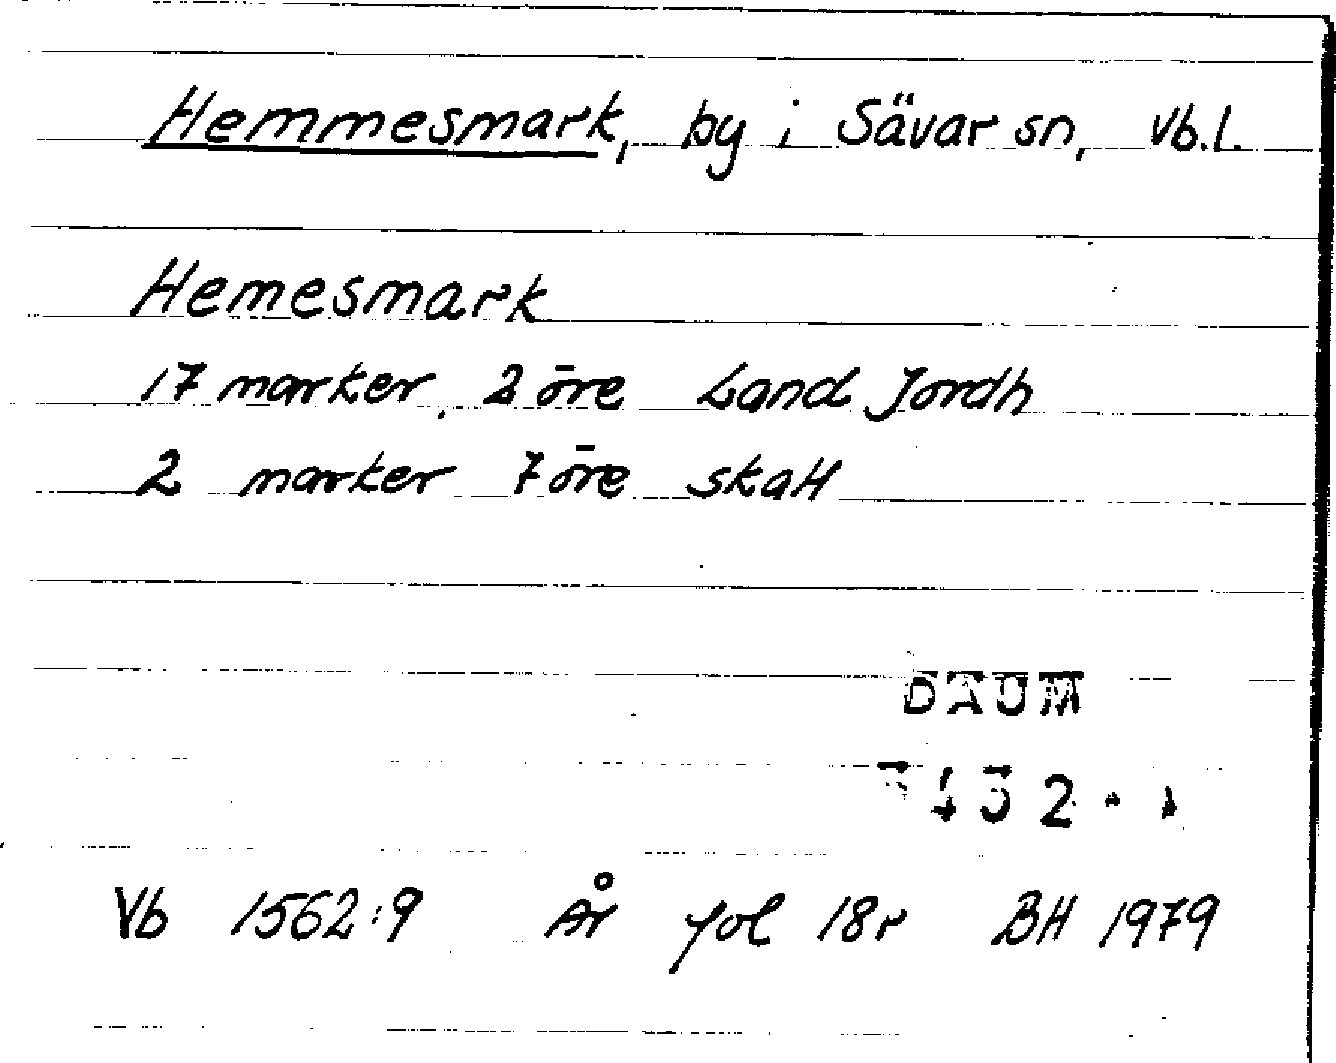 Hemmesmark, by i Sävar sn, Vb.l.
Hemesmark
17 marker, 2 öre Land Jordh
2 marker 7 öre skatt
DAUM
Vb 1562:9 År fol 18r BH 1979